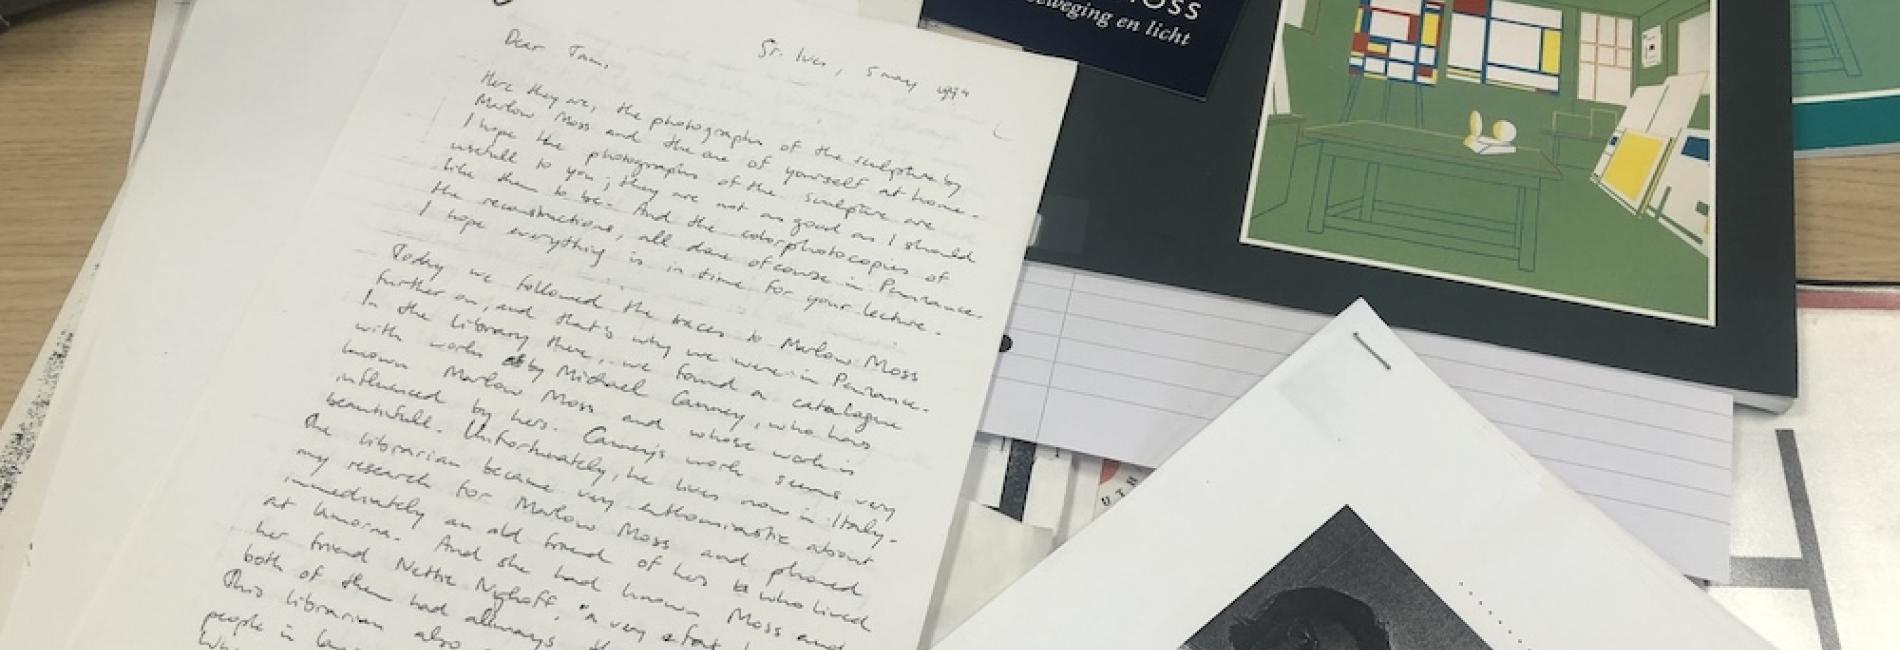 St. Ives, 5 may 1994
Dear Tam,
Here they are, the photographs of the sculpture by
Marlow Moss and the one of yourself at home.
I hope the photographs of the sculpture are
usefull to you; they are not as good as I should
like them to be. And the colorphotocopies of
the reconstructions, all done ofcourse in Penzance.
I hope everything is in time for your lecture.
Today we followed the traces to Marlow Moss
further on, and that's why we were in Penzance.
In the library there, we found a catalogue
with works by Michael Canney, who has
known Marlow Moss and whose work is
influenced by hers. Canney's work seems very
beautifull. Unfortunately, he lives now in Italy.
The librarian became very enthousiastic about
my research for Marlow Moss and phoned
immediately an old friend of hers who lived
at Lamorna. And she had known Moss and
her friend Nettie Nyhoff, "a very
both of them had allways
This librarian also
people in
OSS
beweging en licht
UTH